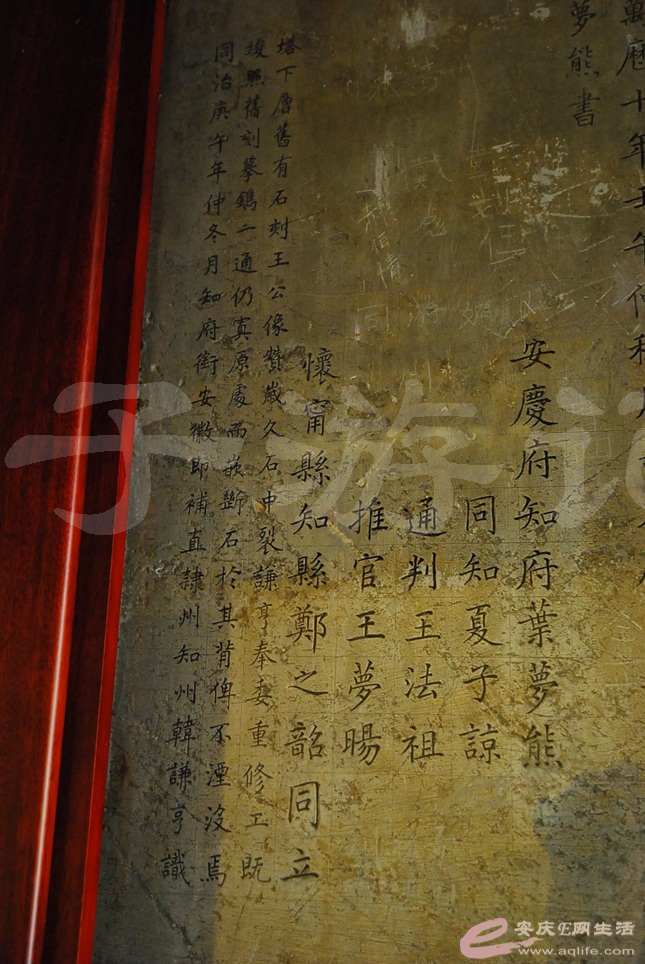 夢熊書
安慶府知府葉夢熊
同知夏子諒
通判王法祖
推官王夢暘
懷甯縣知縣鄭之韶同立
塔下層舊有石刻王公像贊歲久石中裂謙亨奉委重修工既
竣照舊刻摹鐫一通仍寘原處而嵌斷石於其背俾不湮沒焉
同治庚午年仲冬月知府銜安徽即補直隸州知州韓謙亨識
子游记
安庆E网生活
www.aqlife.com